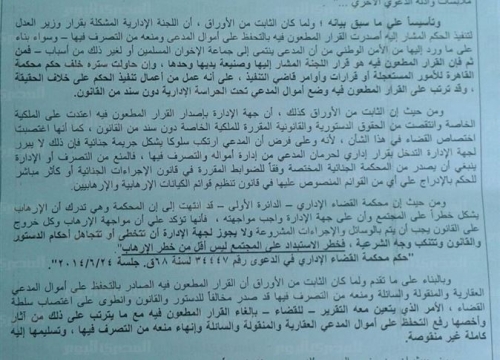 وتأسيساً علي ما سبق بيانه ، ولما كان الثابت من الأوراق ، أن اللجنة الإدارية المشكلة بقرار وزير العدل
لتنفيذ الحكم المشار إليه أصدرت القرار المطعون فيه بالتحفظ علي أموال المدعي ومنعه من التصرف فيها – وسواء بناء
علي ما ورد إليها من الأمن الوطني من أن المدعي ينتمي إلي جماعة الإخوان المسلمين أو لغير ذلك من أسباب – فمن
ثم فإن القرار المطعون فيه هو قرار اللجنة المشار إليها وصنيعة يديها وحدها ، وإن حاولت ستره خلف حكم محكمة
القاهرة للأمور المستعجلة أو قرارات وأوامر قاضي التنفيذ ، علي أنه عمل من أعمال تنفيذ الحكم علي خلاف الحقيقة
، وقد ترتب علي القرار المطعون فيه وضع أموال المدعي تحت الحراسة الإدارية دون سند من القانون.
ومن حيث إن الثابت من الأوراق كذلك ، أن جهة الإدارة بإصدار القرار المطعون فيه اعتدت علي الملكية
الخاصة وانتقصت من الحقوق الدستورية والقانونية المقررة للملكية الخاصة دون سند من القانون ، كما أنها اغتصبت
اختصاص القضاء في هذا الشأن ، لأنه وعلي فرض أن المدعي ارتكب سلوكا يشكل جريمة جنائية فإن ذلك لا يبرر
لجهة الإدارة التدخل بقرار إداري لحرمان المدعي من إدارة أمواله والتصرف فيها ، فالمنع من التصرف أو الإدارة
ينبغي أن يصدر من المحكمة الجنائية المختصة وفقاً للضوابط المقررة في قانون الإجراءات الجنائية أو كأثر مباشر
للحكم بالإدراج علي أي من القوائم المنصوص عليها في قانون تنظيم قوائم الكيانات الإرهابية والإرهابيين.
ومن حيث إن محكمة القضاء الإداري – الدائرة الأولي – قد انتهت إلي إن المحكمة وهي تدرك أن الإرهاب
يشكل خطراً علي المجتمع وأن علي جهة الإدارة واجب مواجهته ، فأنها تؤكد علي أن مواجهة الإرهاب وكل خروج
علي القانون يجب أن يتم بالوسائل والإجراءات المشروعة ولا يجوز لجهة الإدارة أن تتخطي أو تتجاهل أحكام الدستور
والقانون وتتنكب وجه الشرعية ، فخطر الاستبداد علي المجتمع ليس أقل من خطر الإرهاب"
"حكم محكمة القضاء الإداري في الدعوى رقم ٣٤٤٤٧ لسنة ٦٨ق. جلسة ٢٠١٤/٦/٢٤"
وبالبناء علي ما تقدم ولما كان الثابت من الأوراق أن القرار المطعون فيه الصادر بالتحفظ علي أموال المدعي
العقارية والمنقولة والسائلة ومنعه من التصرف فيها قد صدر مخالفاً للدستور والقانون وانطوى علي اغتصاب سلطة
القضاء ، الأمر الذي يتعين معه التقرير – للقضاء – بإلغاء القرار المطعون فيه مع ما يترتب علي ذلك من آثار
وأخصها رفع التحفظ علي أموال المدعي العقارية والمنقولة والسائلة وإنهاء منعه من التصرف فيها ، وتسليمها إليه
كاملة غير منقوصة.